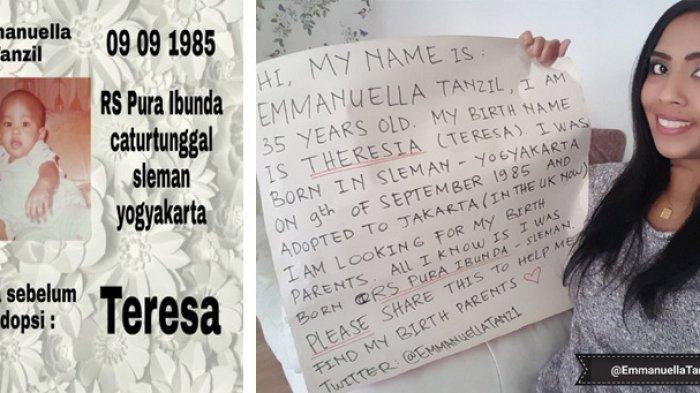 manuella
Tanzil
09 09 1985
RS Pura Ibunda
caturtunggal
sleman
yogyakarta
sebelum
dopsi :
Teresa
HI, MY NAME IS :
EMMANUELLA TANZIL, I AM
35 YEARS OLD. MY BIRTH NAME
IS THERESIA (TERESA). I WAS
BORN IN SLEMAN - YOGYAKARTA
ON 9th OF SEPTEMBER 1985 AND
ADOPTED TO JAKARTA (IN THE UK NOW)
I AM LOOKING FOR MY BIRTH
PARENTS. ALL I KNOW IS I WAS
BORN @RS PURA IBUNDA - SLEMAN.
PLEASE SHARE THIS TO HELP ME
FIND MY BIRTH PARENTS ♡
TWITTER: @EMMANUELLATANZ1
@EmmanuellaTan